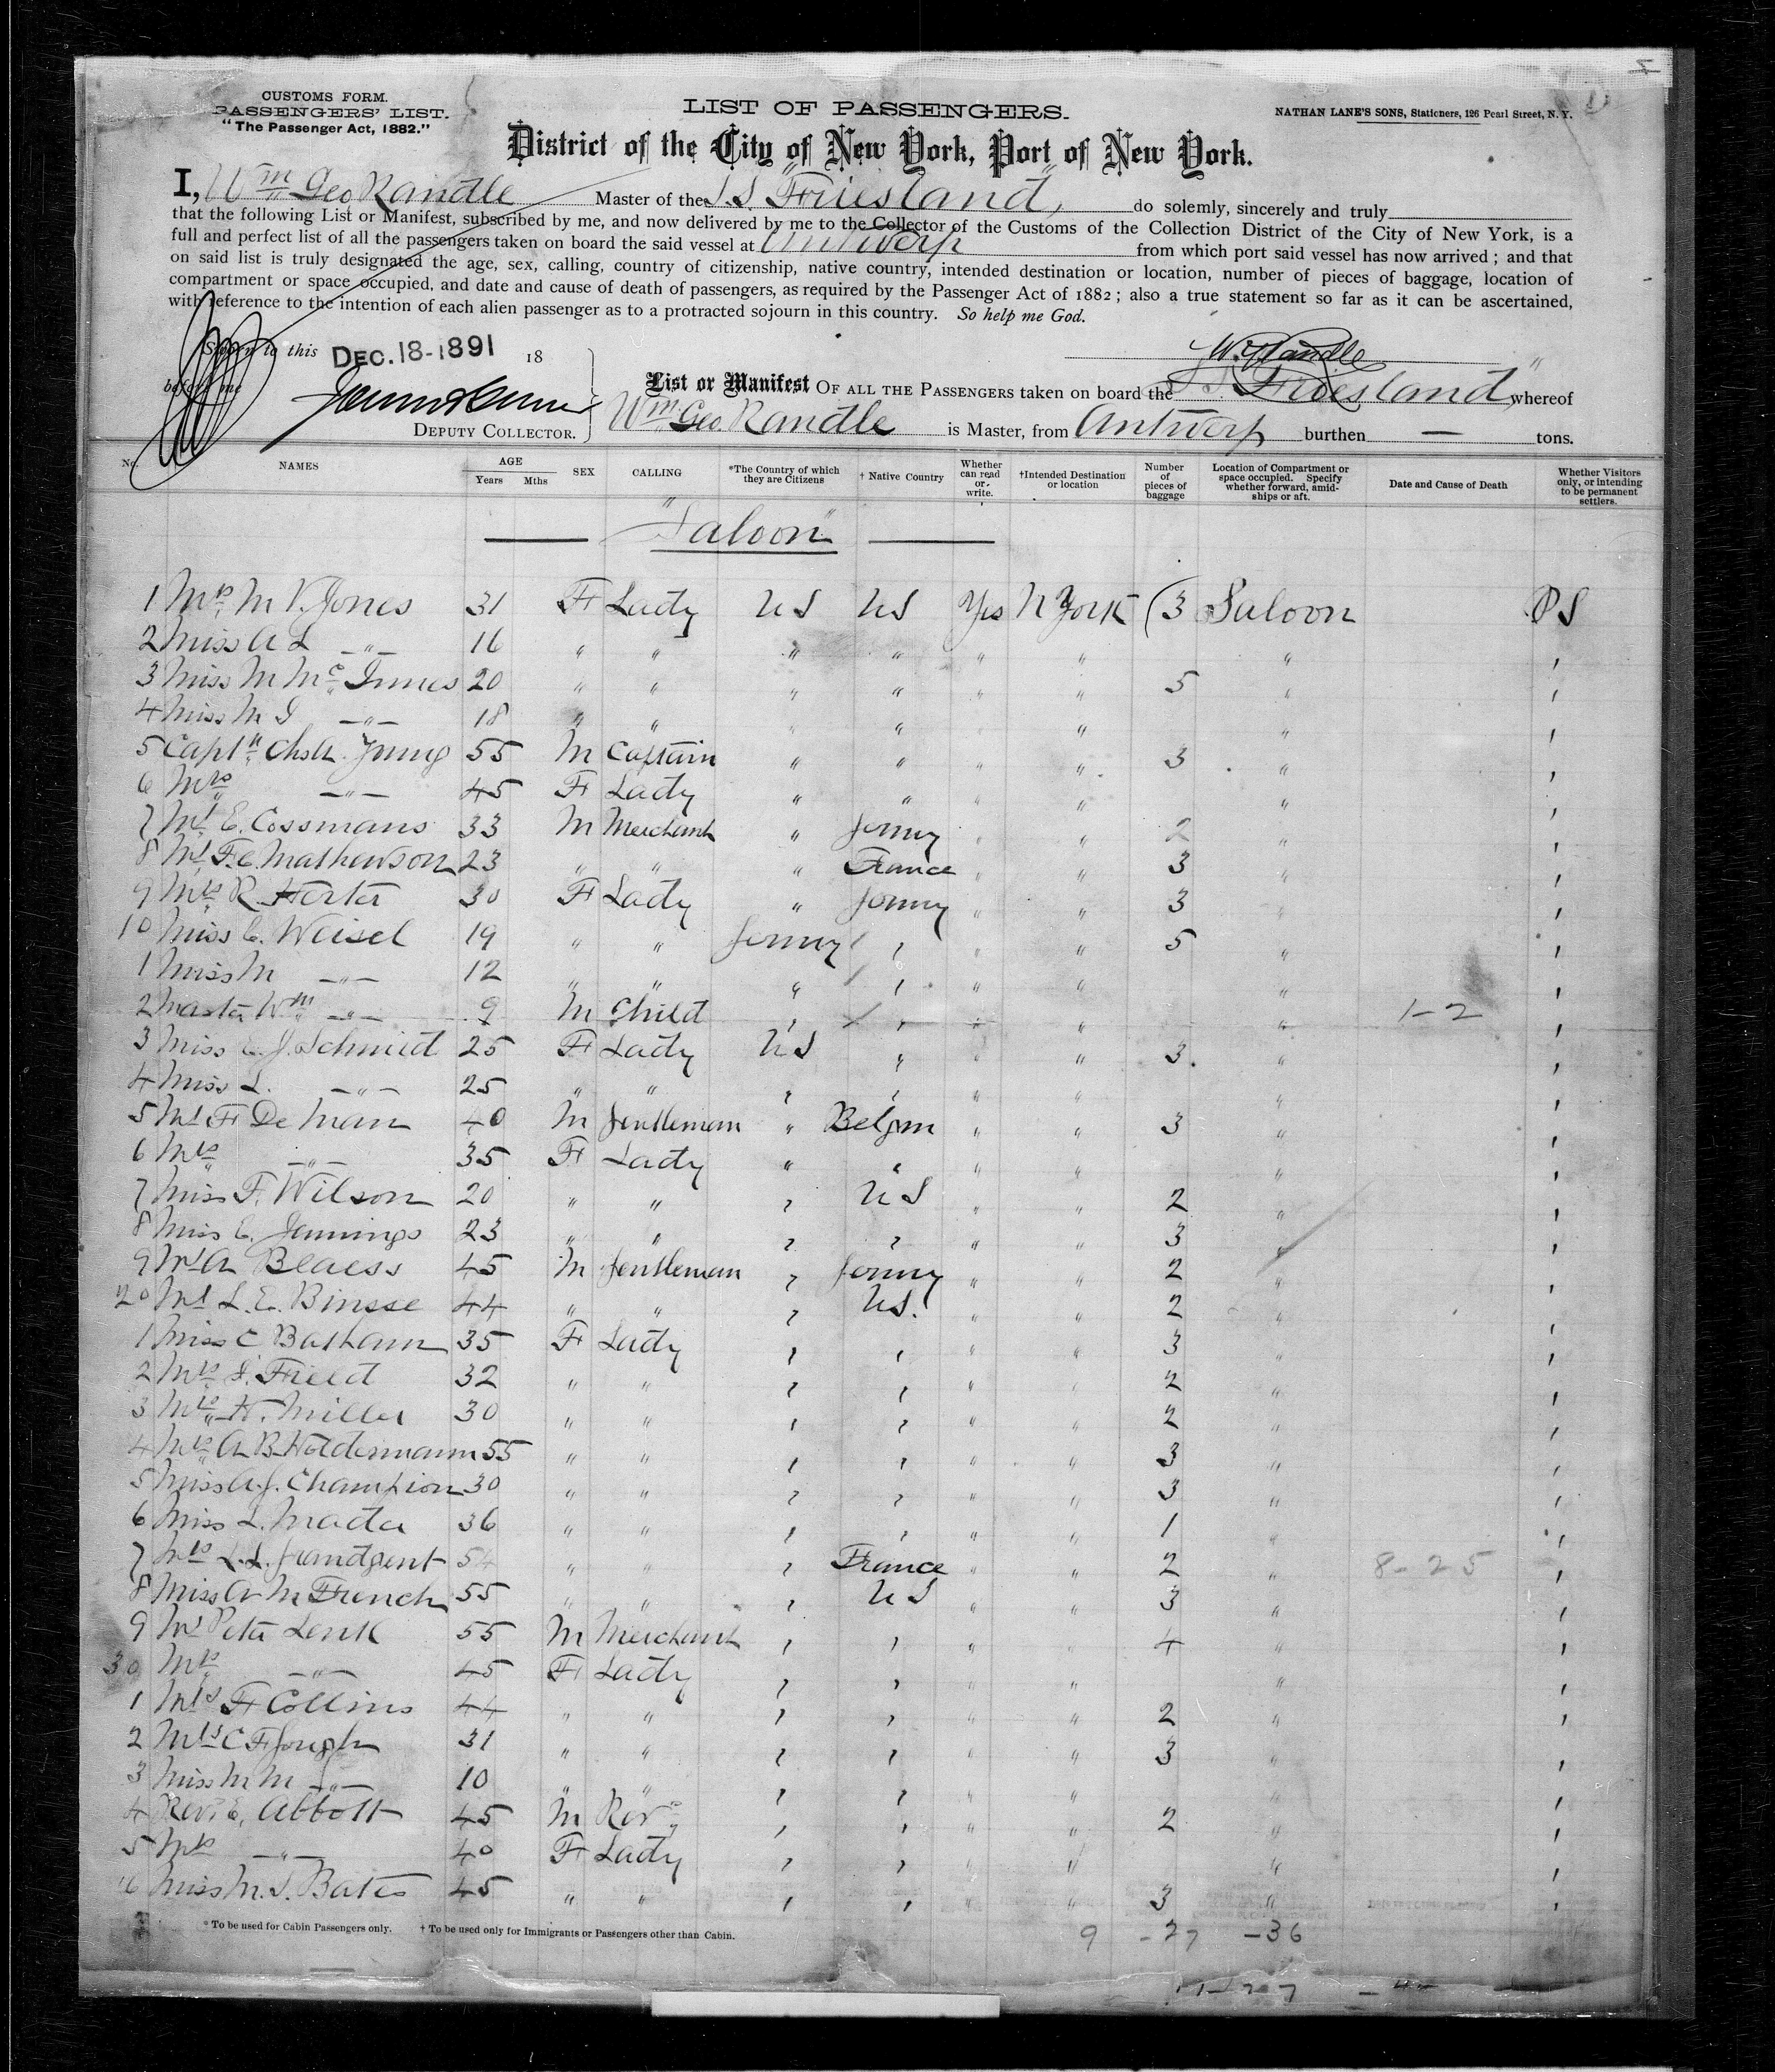 CUSTOMS FORM.
PASSENGERS' LIST.
"The Passenger Act, 1882."
LIST OF PASSENGERS.
NATHAN LANE'S SONS, Stationers, 126 Pearl Street, N. Y.
District of the City of New York, Port of New York.
I, Wm Geo Randle Master of the S.S. "Friesland", do solemnly, sincerely and truly
that the following List or Manifest, subscribed by me, and now delivered by me to the Collector of the Customs of the Collection District of the City of New York, is a
full and perfect list of all the passengers taken on board the said vessel at Antwerp from which port said vessel has now arrived; and that
on said list is truly designated the age, sex, calling, country of citizenship, native country, intended destination or location, number of pieces of baggage, location of
compartment or space occupied, and date and cause of death of passengers, as required by the Passenger Act of 1882; also a true statement so far as it can be ascertained,
with reference to the intention of each alien passenger as to a protracted sojourn in this country. So help me God.
Sworn to this DEC. 18-1891 18
W. G. Randle
before me
List or Manifest OF ALL THE PASSENGERS taken on board the S.S. Friesland" whereof
DEPUTY COLLECTOR.
Wm Geo. Randle is Master, from Antwerp burthen — tons.
No. NAMES AGE Years Mths SEX CALLING *The Country of which they are Citizens † Native Country Whether can read or write. †Intended Destination or location Number of pieces of baggage Location of Compartment or space occupied. Specify whether forward, amidships or aft. Date and Cause of Death Whether Visitors only, or intending to be permanent settlers.
"Saloon"
1 Mrs M V. Jones 31 F Lady US US Yes N York (3 Saloon PS
2 Miss A L —"— 16 " " " " " " " '
3 Miss M Mc Innes 20 " " " " " " 5 " '
4 Miss M I —"— 18 " " " " " '
5 Captn Chs A. Jung 55 M Captain " " " " 3 " '
6 Mrs —"— 45 F Lady " " " " " '
7 Mr E. Cossmans 33 M Merchant " Germy " " 2 " '
8 Mr F. C. Mathewson 23 " " " France " " 3 " '
9 Mrs R. Herter 30 F Lady " Germy " " 3 " '
10 Miss C. Weisel 19 " " Germy ' " " 5 " '
1 Miss M —"— 12 " " " ' " " " '
2 Master Wm —"— 9 M Child ' ' " " " 1-2 '
3 Miss E. J. Schmid 25 F Lady US " " " 3 " '
4 Miss L. —"— 25 " " ' ' " " " '
5 Mr F De Man 40 M Gentleman " Belgm " " 3 " '
6 Mrs —"— 35 F Lady " " " " " '
7 Miss F. Wilson 20 " " ' US " " 2 " '
8 Miss C. Jennings 23 " " ' ' " " 3 " '
9 Mr A Blaess 45 M Gentleman ' Germy " " 2 " '
20 Mr L. E. Binsse 44 " " ' US. " " 2 " '
1 Miss C Batham 35 F Lady ' ' " " 3 " '
2 Mrs J. Freed 32 " " ' ' " " 2 " '
3 Mrs H. Miller 30 " " ' ' " " 2 " '
4 Mrs A B Haldermann 55 " " ' ' " " 3 " '
5 Miss A. J. Champion 30 " " ' ' " " 3 " '
6 Miss L. Mader 36 " " ' ' " " 1 " '
7 Mrs L. L. Grandgent 54 " " ' France " " 2 " 8-25 '
8 Miss A M French 55 " " ' US " " 3 " '
9 Mr Peter Lenk 55 M Merchant ' ' " " 4 " '
30 Mrs —"— 45 F Lady ' ' " " " '
1 Mrs F Collins 44 " " ' ' " " 2 " '
2 Mrs C F Gough 31 " " ' ' " " 3 " '
3 Miss M M —"— 10 " " ' ' " " " '
4 Rev. E. Abbott 45 M Rev ' ' " " 2 " '
5 Mrs —"— 40 F Lady ' ' " " " '
6 Miss M. S. Bates 45 " " ' ' " " 3 " '
* To be used for Cabin Passengers only. † To be used only for Immigrants or Passengers other than Cabin.
9 -27 -36